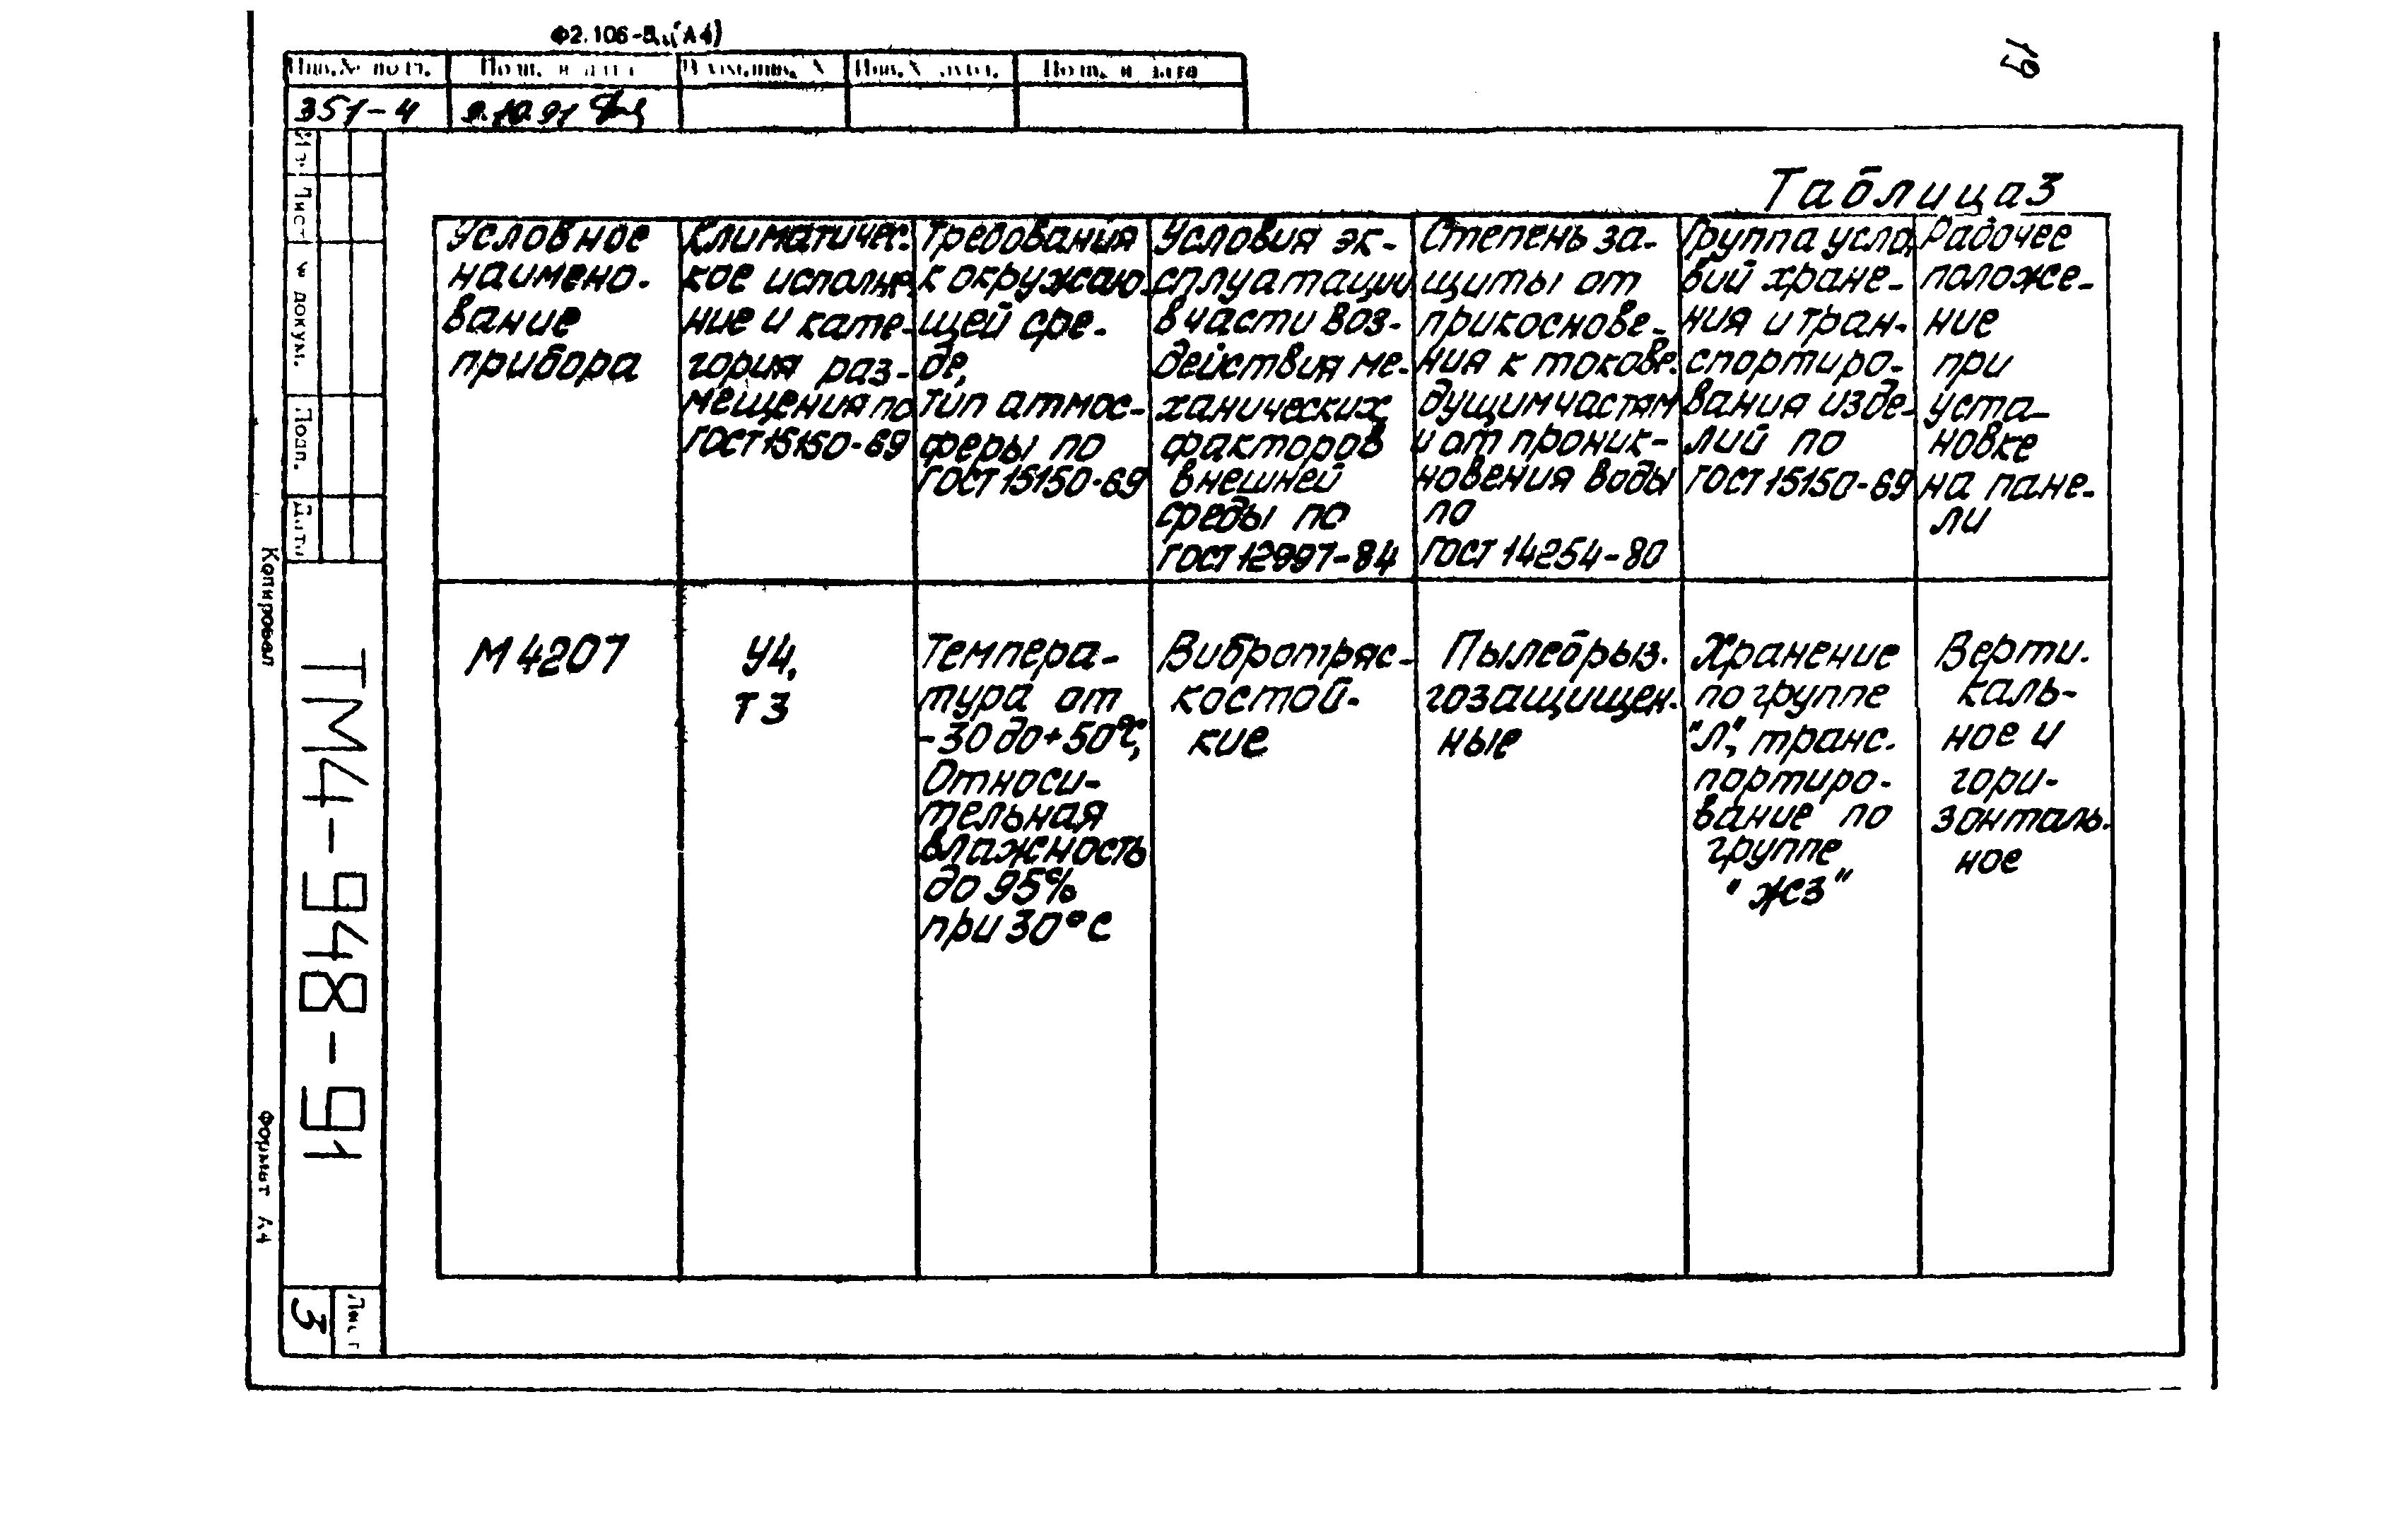 Ф2.106-5 (А4)
19
Инв.№ подл.
Подп. и дата
Взам.инв. №
Инв.№ дубл.
Подп. и дата
351-4
9.10.91
Изм
Лист
№ докум.
Подп.
Дата
Копировал
Формат А4
ТМ4-948-91
Лист
3
Таблица 3
Условное
наимено-
вание
прибора
Климатичес-
кое исполне-
ние и кате-
гория раз-
мещения по
ГОСТ 15150-69
Требования
к окружаю-
щей сре-
де,
тип атмос-
феры по
ГОСТ 15150-69
Условия эк-
сплуатации
в части воз-
действия ме-
ханических
факторов
внешней
среды по
ГОСТ 12997-84
Степень за-
щиты от
прикоснове-
ния к токове-
дущим частям
и от проник-
новения воды
по
ГОСТ 14254-80
Группа усло-
вий хране-
ния и тран-
спортиро-
вания изде-
лий по
ГОСТ 15150-69
Рабочее
положе-
ние
при
уста-
новке
на пане-
ли
М4207
У4,
Т3
Темпера-
тура от
-30 до +50°С,
Относи-
тельная
влажность
до 95%
при 30°С
Вибротряс-
костой-
кие
Пылебрыз-
гозащищен-
ные
Хранение
по группе
"Л", транс-
портиро-
вание по
группе
"ЖЗ"
Верти-
каль-
ное и
гори-
зонталь-
ное